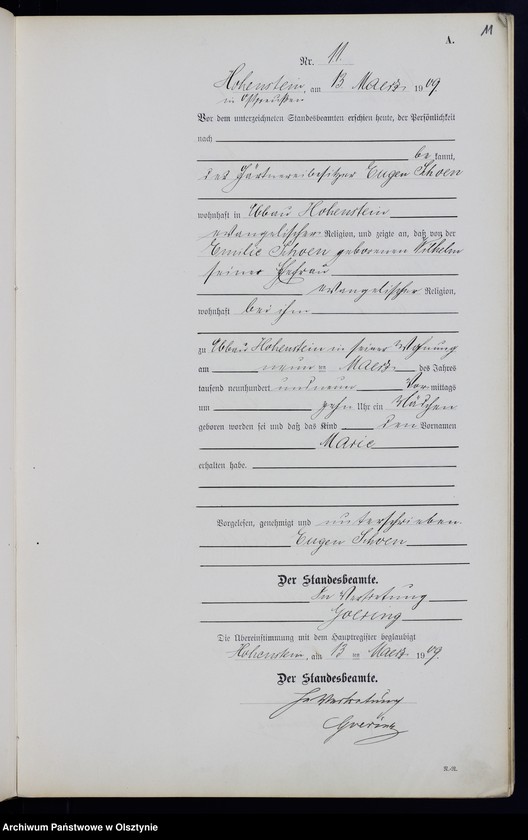 11
A.
Nr. 11.
Hohenstein, am 13 Maerz 1909.
in Ostpreußen
Vor dem unterzeichneten Standesbeamten erschien heute, der Persönlichkeit
nach
be kannt,
der Gärtnereibesitzer Eugen Schoen
wohnhaft in Abbau Hohenstein
evangelischer Religion, und zeigte an, daß von der
Emilie Schoen geborenen Wilhelm
seiner Ehefrau
evangelischer Religion,
wohnhaft bei ihm
zu Abbau Hohenstein in seiner Wohnung
am neunten Maerz des Jahres
tausend neunhundert und neun Vor mittags
um zehn Uhr ein Mädchen
geboren worden sei und daß das Kind den Vornamen
Marie
erhalten habe.
Vorgelesen, genehmigt und unterschrieben
Eugen Schoen
Der Standesbeamte.
In Vertretung
Goering
Die Übereinstimmung mit dem Hauptregister beglaubigt
Hohenstein, am 13 ten Maerz 1909.
Der Standesbeamte.
In Vertretung
Goering
Archiwum Państwowe w Olsztynie